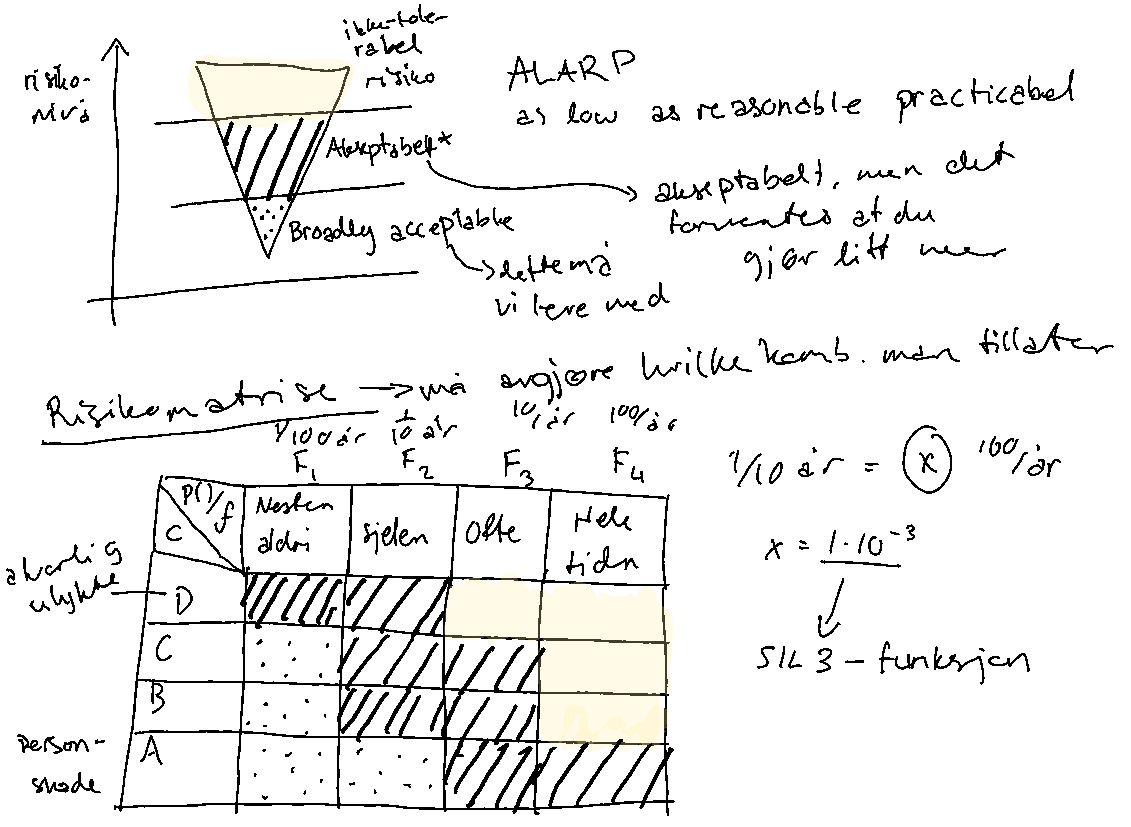 risiko-
nivå
ikke-tole-
rabel
risiko
Akseptabelt*
Broadly acceptable
dette må
vi leve med
ALARP
as low as reasonable practicabel
akseptabelt, men det
forventes at du
gjør litt mer
Risikomatrise → må avgjøre hvilke komb. man tillater
1/100 år 1/10 år 10/år 100/år
F₁ F₂ F₃ F₄
P()/f
C
Nesten
aldri
sjelen
Ofte
Hele
tidn
alvorlig
ulykke
D
C
B
A
person-
skade
1/10 år = x 100/år
x = 1·10⁻³
SIL 3 - funksjon